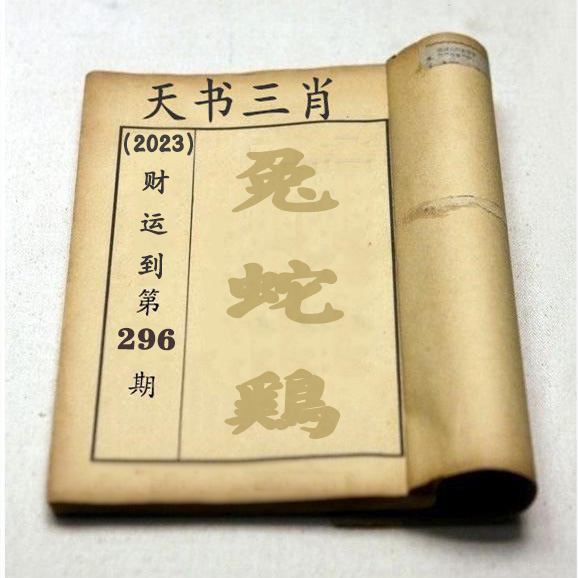 天书三肖
(2023)
财运到第
296
期
兔
蛇
鷄